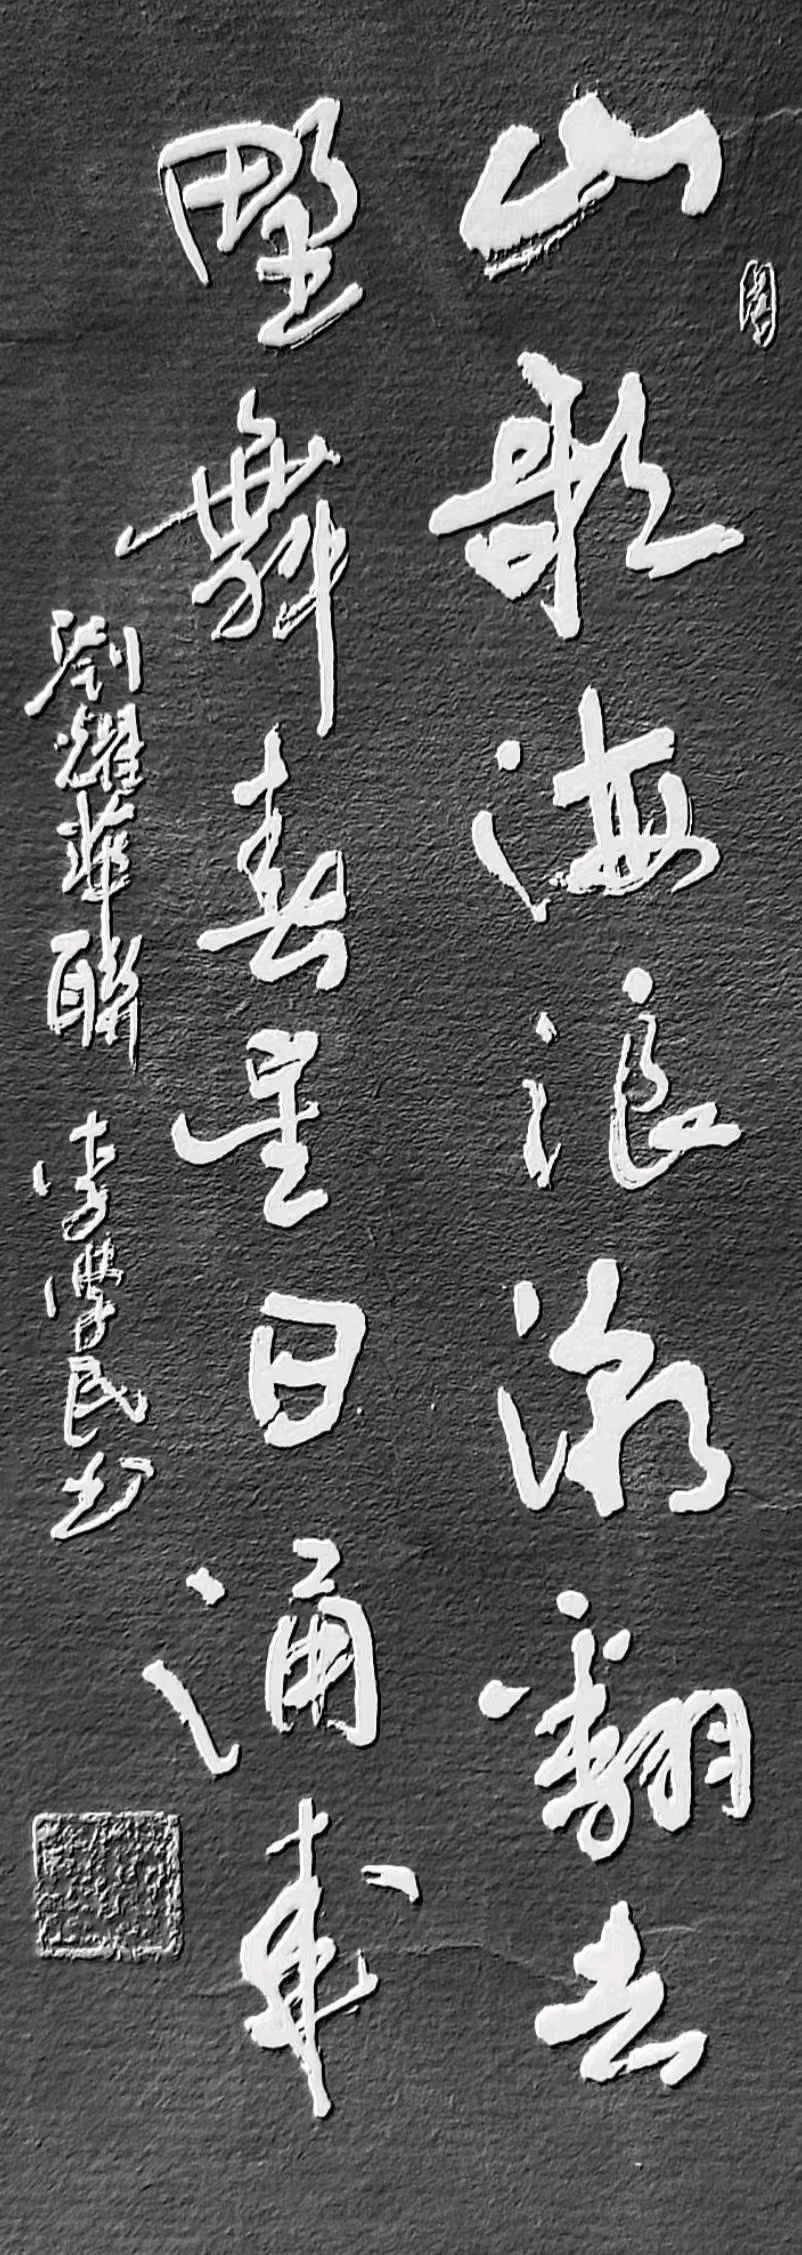 山歌海浪潮翻去
野舞春星日涌来
劉耀華聯 李學民书